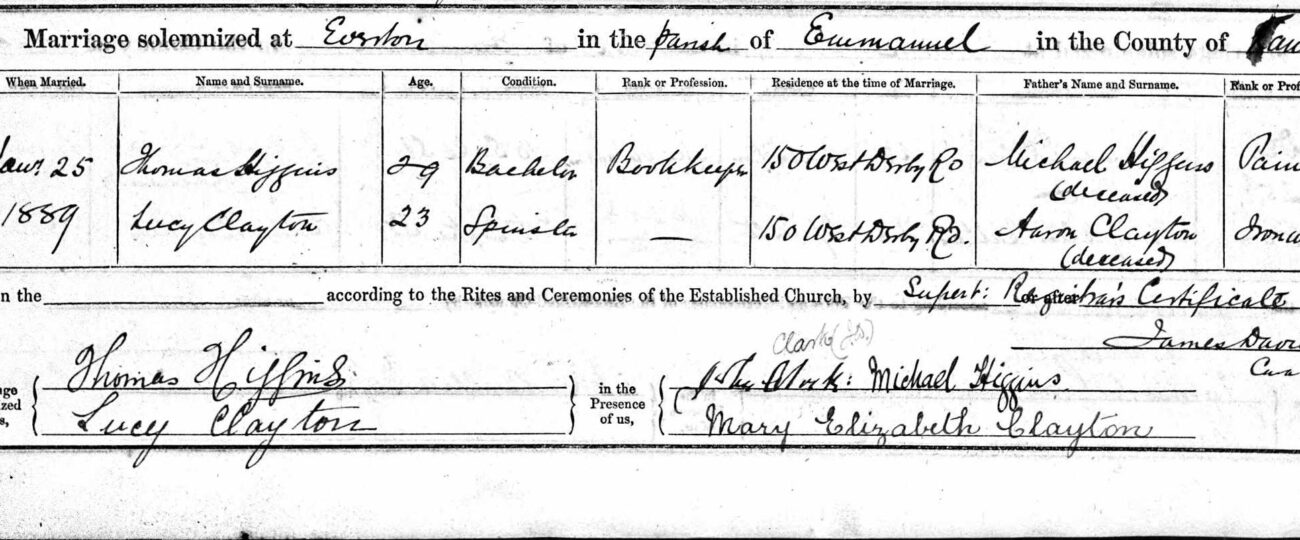 Marriage solemnized at Everton in the parish of Emmanuel in the County of
When Married. Name and Surname. Age. Condition. Rank or Profession. Residence at the time of Marriage. Father's Name and Surname. Rank or Prof
25 Thomas Higgins 29 Bachelor Bookkeeper 150 West Derby Rd Michael Higgins Pain
(deceased)
1889 Lucy Clayton 23 Spinster — 150 West Derby Rd. Aaron Clayton
(deceased)
n the according to the Rites and Ceremonies of the Established Church, by Supert: Registrar's Certificate
James Davi
Clark
Thomas Higgins in the Presence of us, John Michael Higgins
Lucy Clayton Mary Elizabeth Clayton